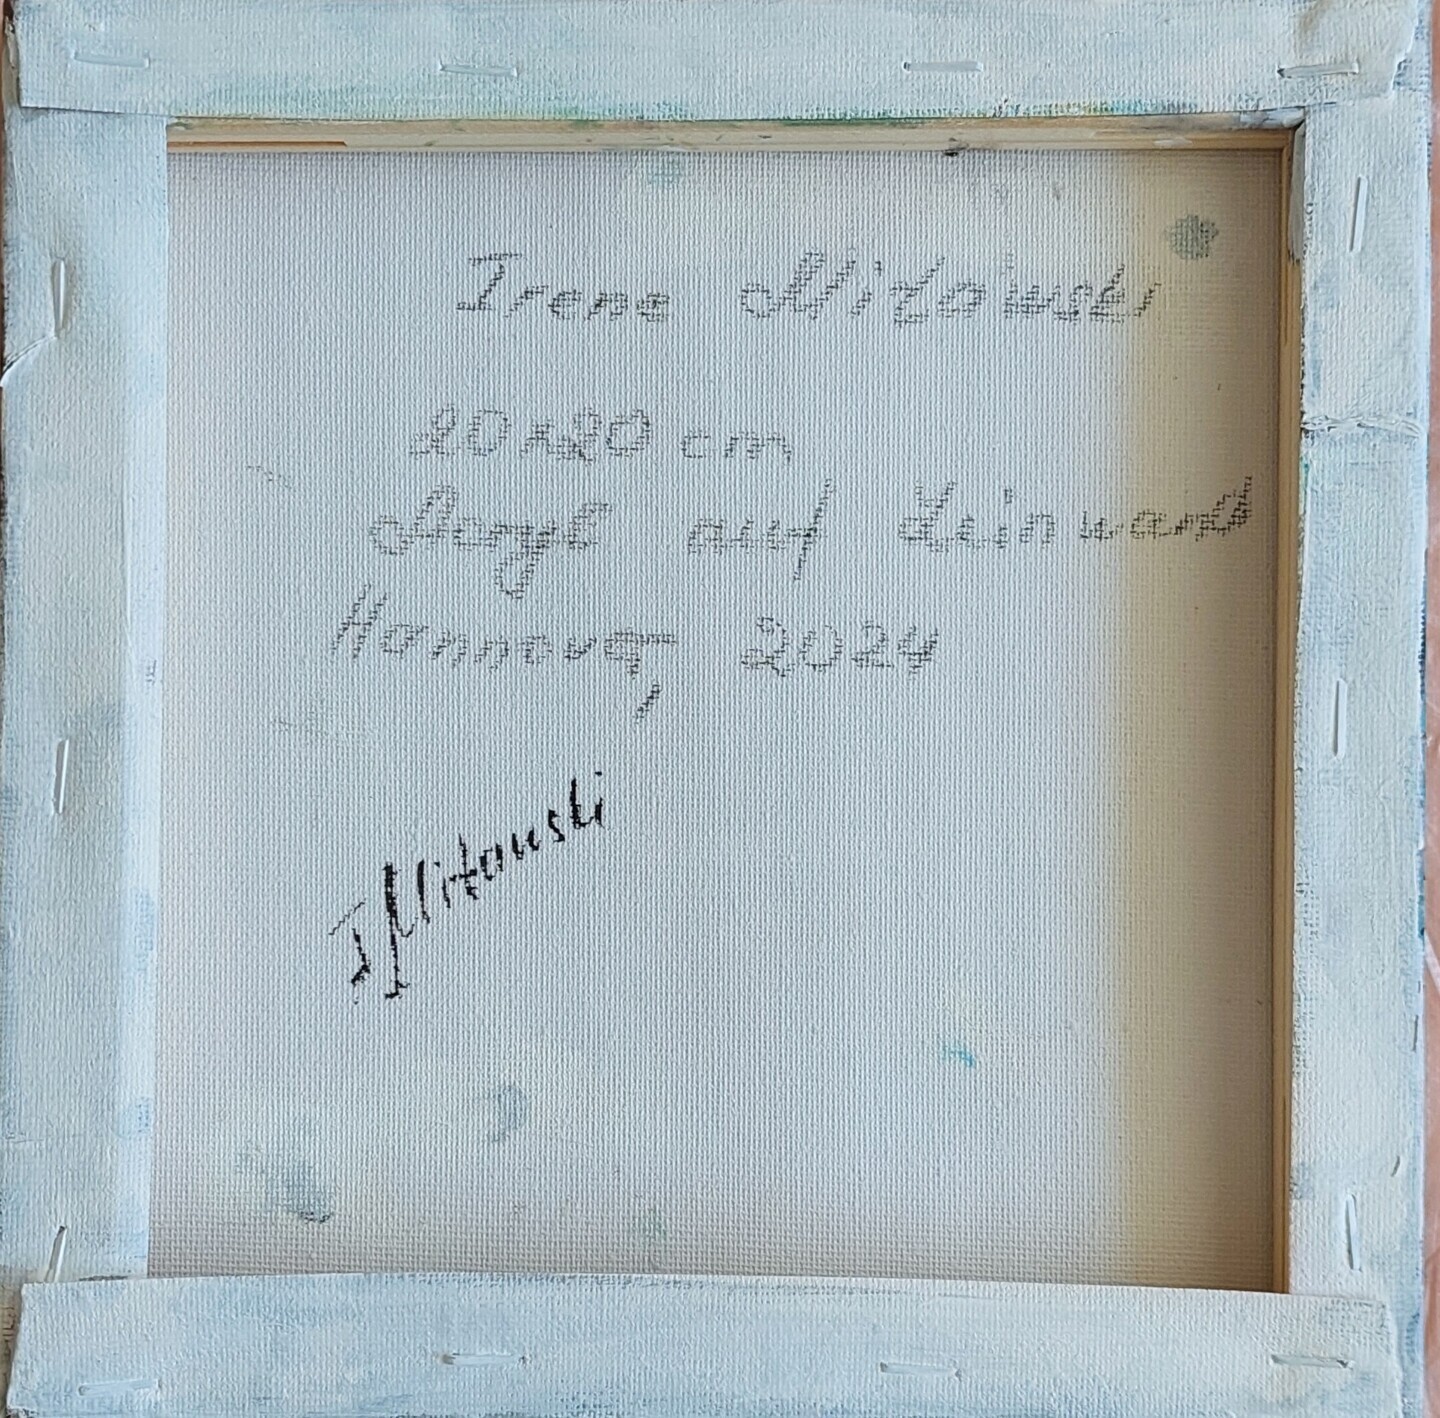 Irene Mitowski
20x20 cm
Acryl auf Leinwand
Hannover, 2024
I Mitowski